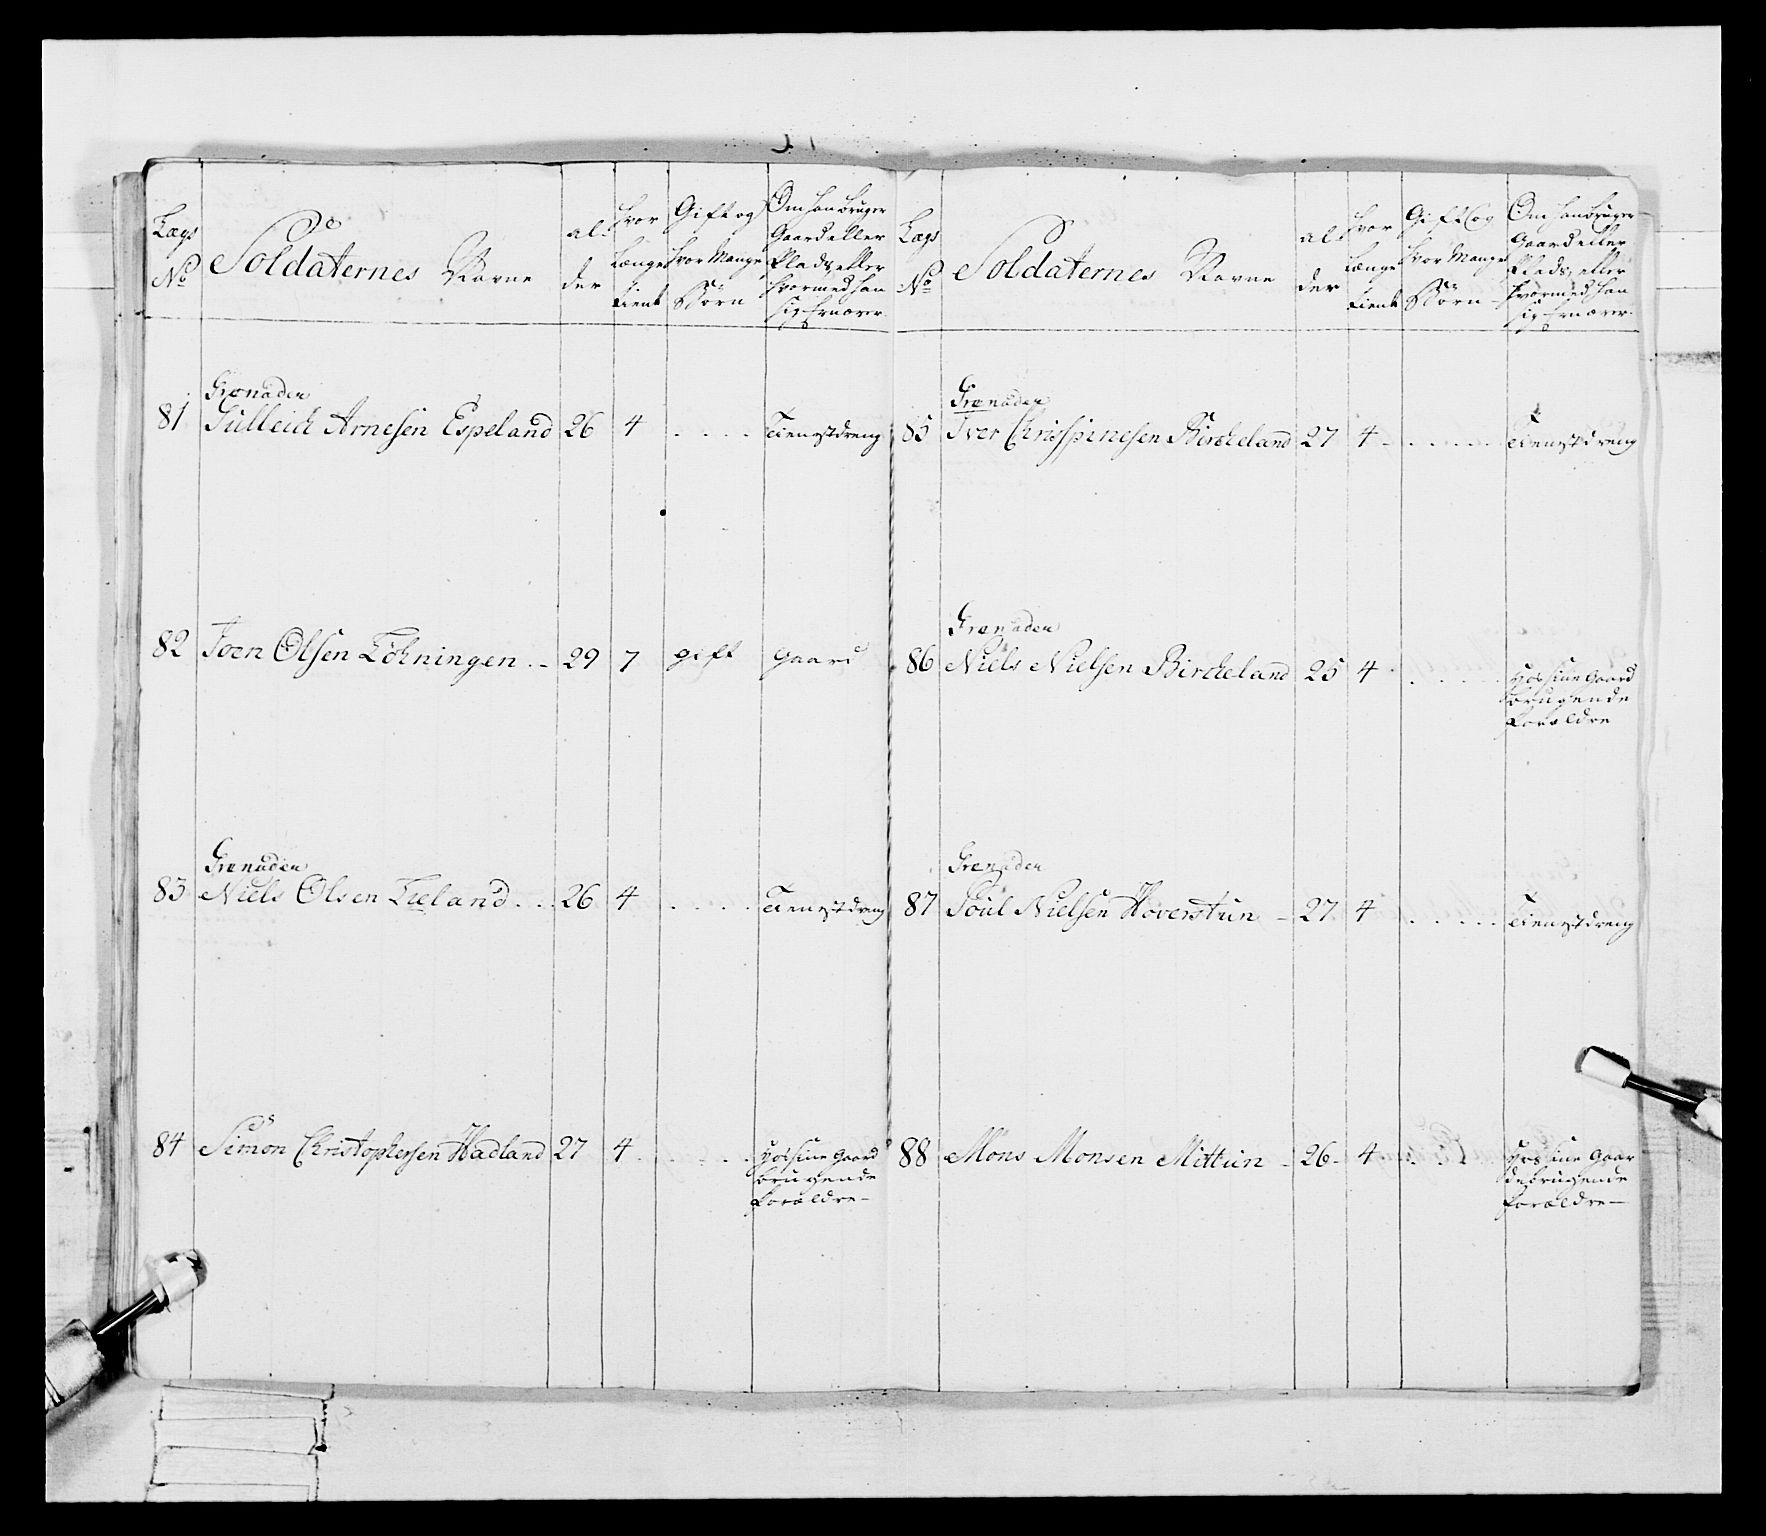 Lægs No
Soldaternes Navne
al-
der
hvor længe tient
Gift og hvor Mange Börn
Om han bruger
Gaard eller
Plads, eller
hvormed han
sig Ernærer
81
Grenader
Gulleich Arnesen Espeland 26 4 . . . . Tienestdreng
82 Joen Olsen Löhningen . - 29 7 gift gaard
Grenader
83 Niels Olsen Lieland . . . 26 4 . . . . Tienestdreng
84 Simon Christophersen Hadland 27 4 . . . . . hos sine Gaard
brugende
Forældre -
Lægs No
Soldaternes Navne
al-
der
hvor længe tient
Gift og hvor Mange Börn
Om han bruger
Gaard eller
Plads, eller
hvormed han
sig Ernærer
Grenader
85 Iver Chrisspinesen Birckeland 27 4 - . . . . . Tienestdreng
Grenader
86 Niels Nielsen Birckeland 25 4 . . . . . hos sine Gaard
brugende
Forældre
Grenader
87 Poul Nielsen Hoverstun - 27 4 . . . . . Tienestdreng
88 Mons Monsen Mittun - 26 - 4 . . . hos sine Gaar
debrugende
forældre -